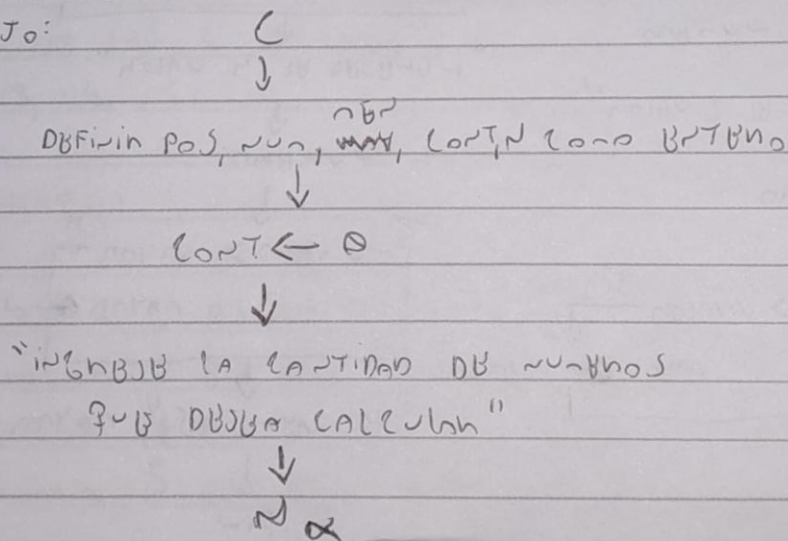 TO:
C
↓
MEN
DEFINIR POS, NUM, CONT, N COMO ENTERO
↓
CONT ← 0
↓
"INGRESE LA CANTIDAD DE NUMEROS
QUE DESEA CALCULAR"
↓
N